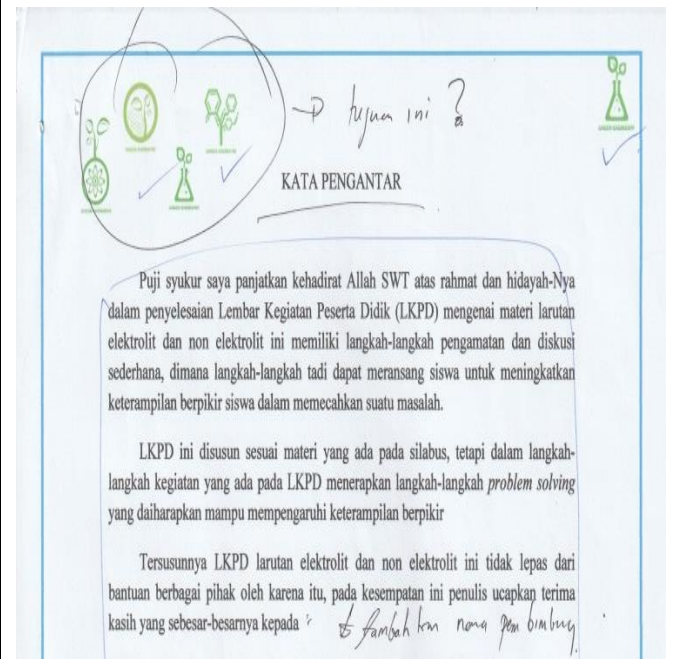 tujuan ini ?
KATA PENGANTAR
Puji syukur saya panjatkan kehadirat Allah SWT atas rahmat dan hidayah-Nya
dalam penyelesaian Lembar Kegiatan Peserta Didik (LKPD) mengenai materi larutan
elektrolit dan non elektrolit ini memiliki langkah-langkah pengamatan dan diskusi
sederhana, dimana langkah-langkah tadi dapat meransang siswa untuk meningkatkan
keterampilan berpikir siswa dalam memecahkan suatu masalah.
LKPD ini disusun sesuai materi yang ada pada silabus, tetapi dalam langkah-
langkah kegiatan yang ada pada LKPD menerapkan langkah-langkah problem solving
yang daiharapkan mampu mempengaruhi keterampilan berpikir
Tersusunnya LKPD larutan elektrolit dan non elektrolit ini tidak lepas dari
bantuan berbagai pihak oleh karena itu, pada kesempatan ini penulis ucapkan terima
kasih yang sebesar-besarnya kepada : tambahkan nama pembimbing